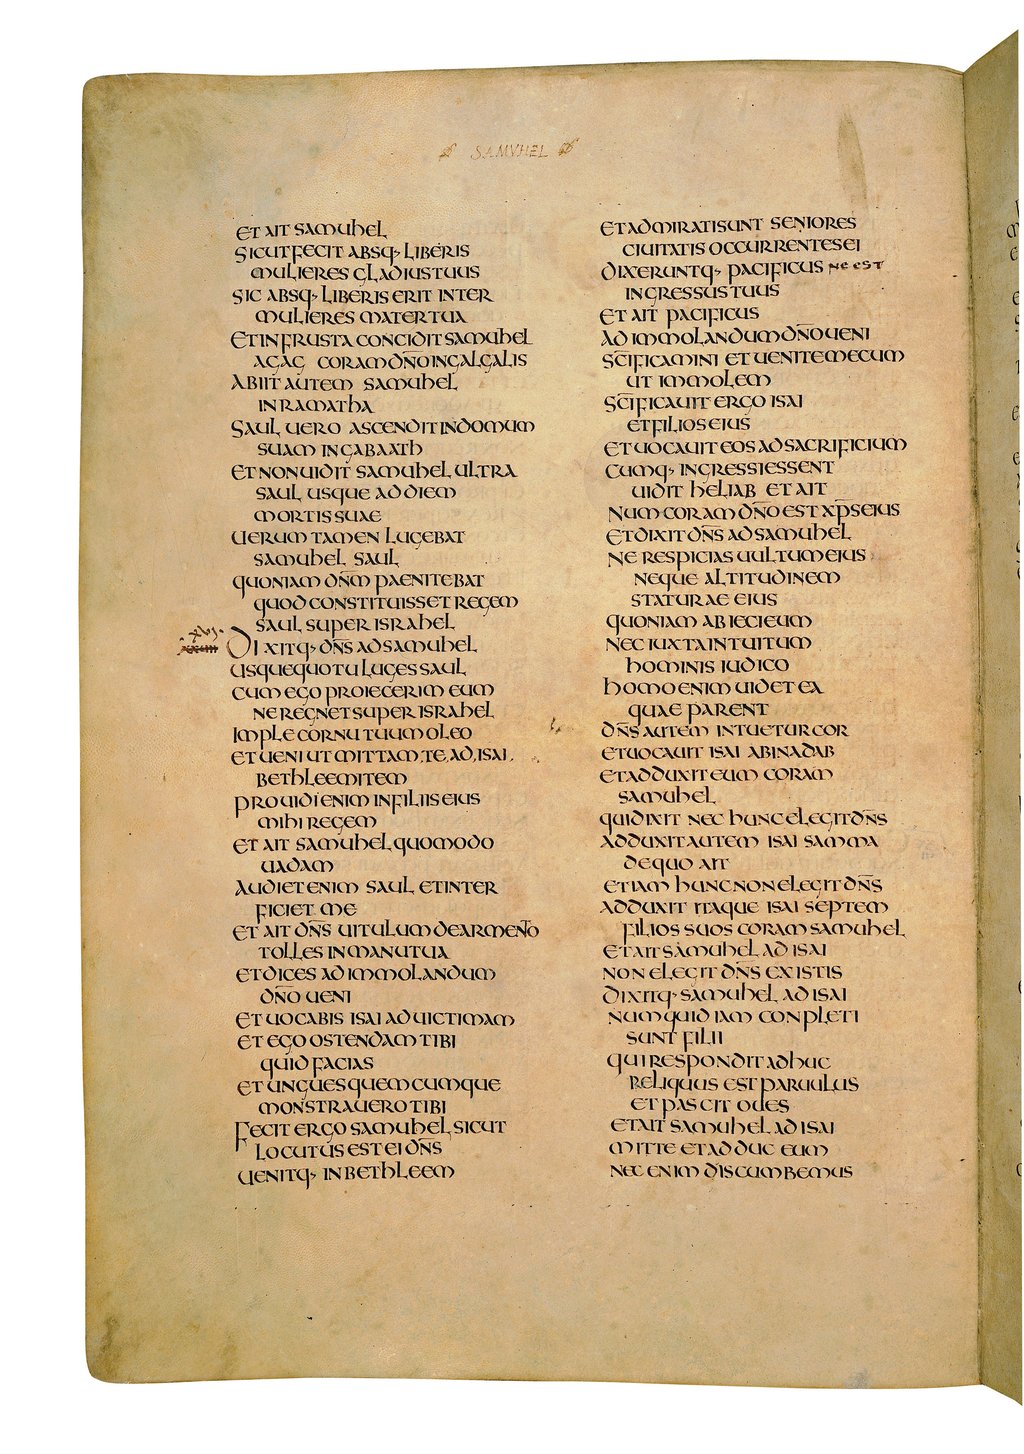 SAMVHEL
ET AIT SAMUHEL
SICUT FECIT ABSQ· LIBERIS
MULIERES GLADIUS TUUS
SIC ABSQ· LIBERIS ERIT INTER
MULIERES MATER TUA
ET IN FRUSTA CONCIDIT SAMUHEL
AGAG CORAM DÑO IN GALGALIS
ABIIT AUTEM SAMUHEL
IN RAMATHA
SAUL UERO ASCENDIT IN DOMUM
SUAM IN GABAATH
ET NON UIDIT SAMUHEL ULTRA
SAUL USQUE AD DIEM
MORTIS SUAE
UERUM TAMEN LUGEBAT
SAMUHEL SAUL
QUONIAM DÑM PAENITEBAT
QUOD CONSTITUISSET REGEM
SAUL SUPER ISRAHEL
XVI
XXIII DIXITQ· DÑS AD SAMUHEL
USQUEQUO TU LUGES SAUL
CUM EGO PROIECERIM EUM
NE REGNET SUPER ISRAHEL
IMPLE CORNU TUUM OLEO
ET UENI UT MITTAM TE AD ISAI
BETHLEEMITEM
PROUIDI ENIM IN FILIIS EIUS
MIHI REGEM
ET AIT SAMUHEL QUOMODO
UADAM
AUDIET ENIM SAUL ET INTER
FICIET ME
ET AIT DÑS UITULUM DE ARMENTO
TOLLES IN MANU TUA
ET DICES AD IMMOLANDUM
DÑO UENI
ET UOCABIS ISAI AD UICTIMAM
ET EGO OSTENDAM TIBI
QUID FACIAS
ET UNGUES QUEMCUMQUE
MONSTRAUERO TIBI
FECIT ERGO SAMUHEL SICUT
LOCUTUS EST EI DÑS
UENITQ· IN BETHLEEM
ET ADMIRATI SUNT SENIORES
CIUITATIS OCCURRENTES EI
DIXERUNTQ· PACIFICUS NE EST
INGRESSUS TUUS
ET AIT PACIFICUS
AD IMMOLANDUM DÑO UENI
SCIFICAMINI ET UENITE MECUM
UT IMMOLEM
SCIFICAUIT ERGO ISAI
ET FILIOS EIUS
ET UOCAUIT EOS AD SACRIFICIUM
CUMQ· INGRESSI ESSENT
UIDIT HELIAB ET AIT
NUM CORAM DÑO EST XPS EIUS
ET DIXIT DÑS AD SAMUHEL
NE RESPICIAS UULTUM EIUS
NEQUE ALTITUDINEM
STATURAE EIUS
QUONIAM ABIECI EUM
NEC IUXTA INTUITUM
HOMINIS IUDICO
HOMO ENIM UIDET EA
QUAE PARENT
DÑS AUTEM INTUETUR COR
ET UOCAUIT ISAI ABINADAB
ET ADDUXIT EUM CORAM
SAMUHEL
QUI DIXIT NEC HUNC ELEGIT DÑS
ADDUXIT AUTEM ISAI SAMMA
DE QUO AIT
ETIAM HUNC NON ELEGIT DÑS
ADDUXIT ITAQUE ISAI SEPTEM
FILIOS SUOS CORAM SAMUHEL
ET AIT SAMUHEL AD ISAI
NON ELEGIT DÑS EX ISTIS
DIXITQ· SAMUHEL AD ISAI
NUMQUID IAM CONPLETI
SUNT FILII
QUI RESPONDIT ADHUC
RELIQUUS EST PARUULUS
ET PASCIT OUES
ET AIT SAMUHEL AD ISAI
MITTE ET ADDUC EUM
NEC ENIM DISCUMBEMUS